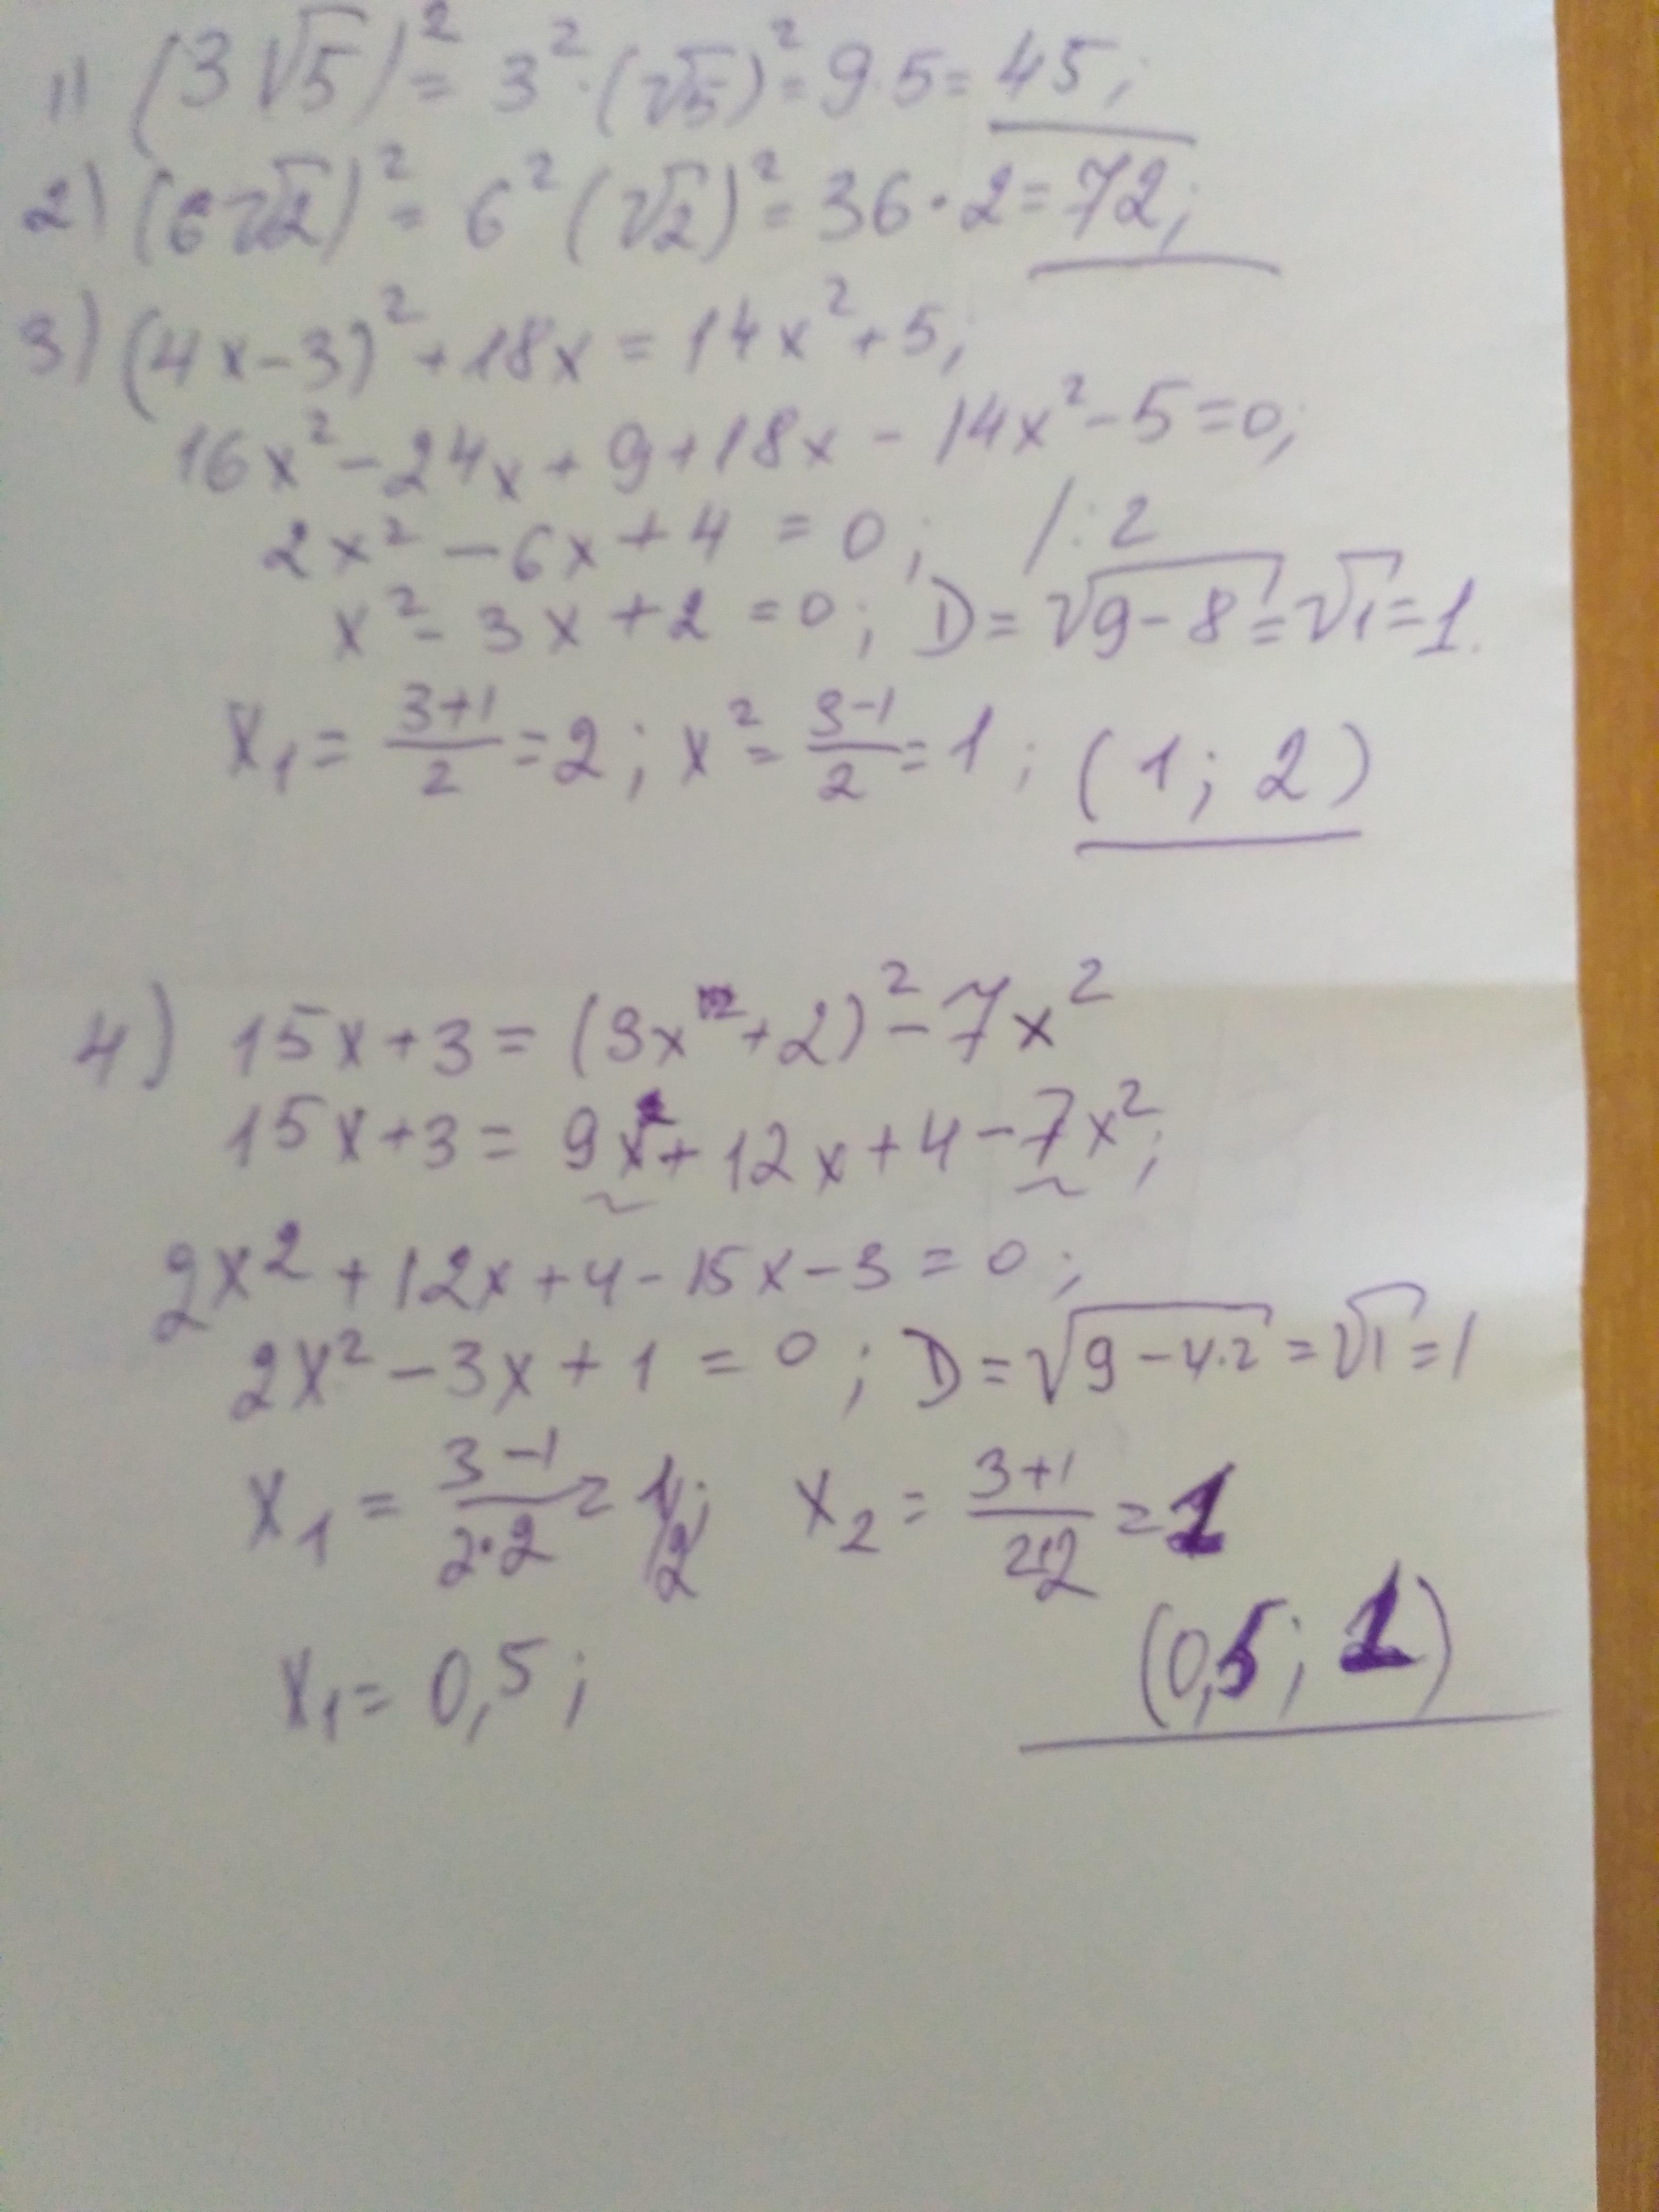 1) (3√5)² = 3²·(√5)² = 9·5 = 45;
2) (6√2)² = 6²(√2)² = 36·2 = 72;
3) (4x-3)² + 18x = 14x² + 5;
16x² - 24x + 9 + 18x - 14x² - 5 = 0;
2x² - 6x + 4 = 0; /:2
x² - 3x + 2 = 0; D = √9-8 = √1 = 1.
x₁ = 3+1/2 = 2; x² = 3-1/2 = 1; (1; 2)
4) 15x + 3 = (3x + 2)² - 7x²
15x + 3 = 9x² + 12x + 4 - 7x²;
2x² + 12x + 4 - 15x - 3 = 0;
2x² - 3x + 1 = 0; D = √9-4·2 = √1 = 1
x₁ = 3-1/2·2 = 1/2; x₂ = 3+1/2·2 = 1
(0,5; 1)
x₁ = 0,5;